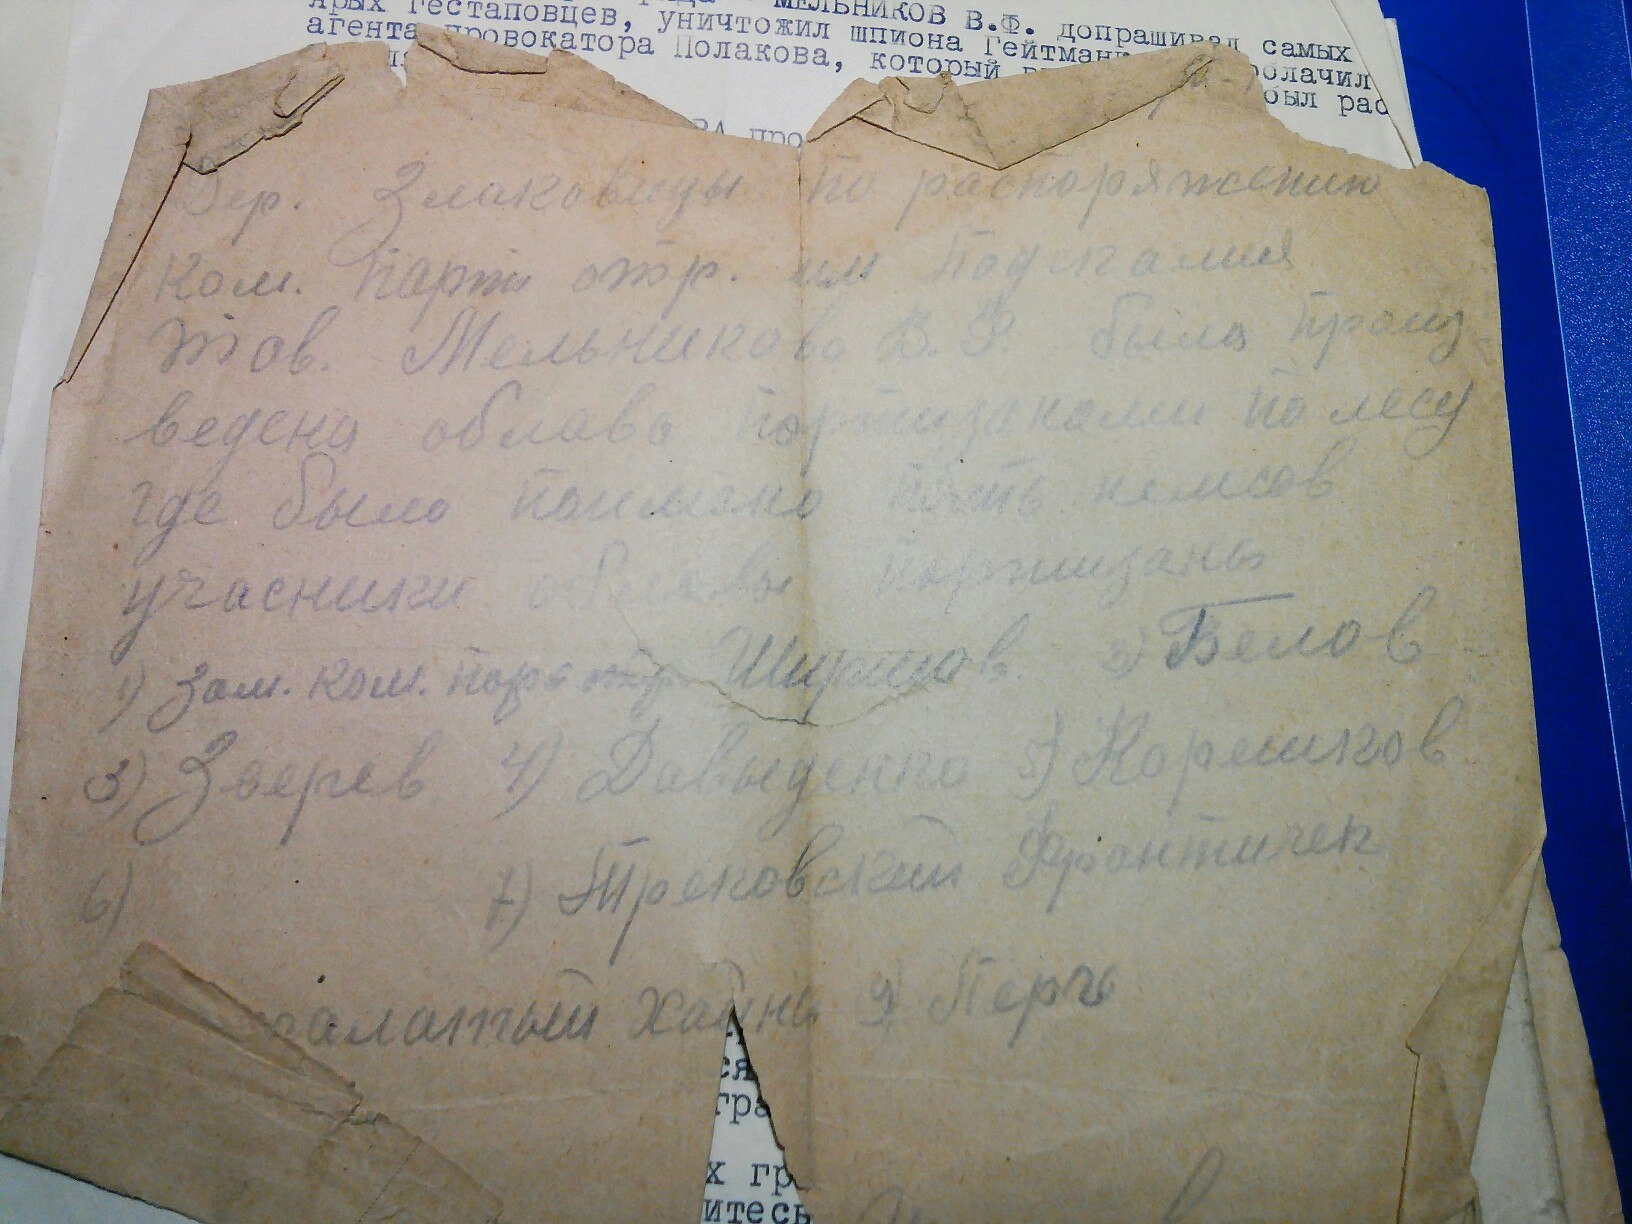 МЕЛЬНИКОВ В.Ф. допрашивал самых
ярых гестаповцев, уничтожил шпиона Гейтман
агента провокатора Полакова, который облачил
был рас
про
Дер. Злаковицы по распоряжению
ком. парт отр. им Подгалия
тов. Мельникова В.Ф. была произ-
ведена облава партизанами по лесу
где было поимано пять немсов
учасники облавы партизаны
1) зам. ком. парт отр Ширшов. 2) Белов
3) Зверев 4) Давыденко 5) Корешков
6) 7) Трековский Франтичек
алатый Хаинь 9) Перчь
ся
гра
х гр
итесь